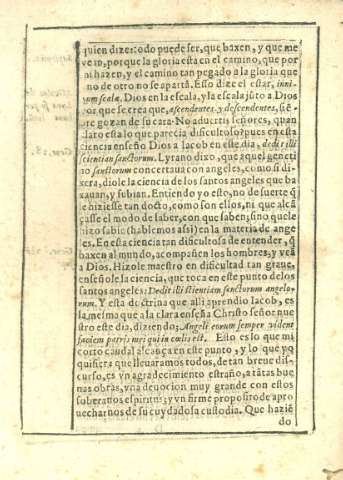 quien dize: odo puede ser, que baxen, y que me
veaō, porque la gloria esta en el camino, que por
ni hazen, y el camino tan pegado a la gloria que
no de otro no se aparta. Esso dize el estar, inni-
xum scalæ, Dios en la escala, y la escala jūto a Dios
por que se crea que, ascendentes, y descendentes, siē-
re gozan de su cara. No aduertis señores, quan
claro esta lo que parecia dificultoso? pues en esta
ciencia enseño Dios a Iacob en este dia, dedit illi
scientian sanctorum. Lyrano dixo, que aquel geneti
uo sanctorum concertaua con angeles, como si di-
xera, diole la ciencia de los santos angeles que ba
xauan, y subian. Entiendo yo esto, no de suerte q̄
le hiziesse tan docto, como son ellos, ni que alcā
çasse el modo de saber, con que saben; sino que le
hizo sabio (hablemos assi) en la materia de ange
les. En esta ciencia tan dificultosa de entender, q̄
baxen al mundo, acompañen los hombres, y veā
a Dios. Hizole maestro en dificultad tan graue,
enseñole la ciencia, que toca en este punto de los
santos angeles: Dedit illi scientiam sanctorum angelo-
rum. Y esta doctrina que alli aprendio Iacob, es
la mesma que a la clara enseña Christo señor nue
stro este dia, diziendo; Angeli eorum semper vident
faciem patris mei qui in cœlis est. Esto es lo que mi
corto caudal alcança en este punto, y lo que yo
quisiera que lleuaramos todos, de tan breue dis-
curso, es vn agradecimiento estraño, a tātas bue
nas obras, vna deuocion muy grande con estos
soberanos espiritus; y vn firme proposito de apro
uecharnos de su cuydadosa custodia. Que haziē
do